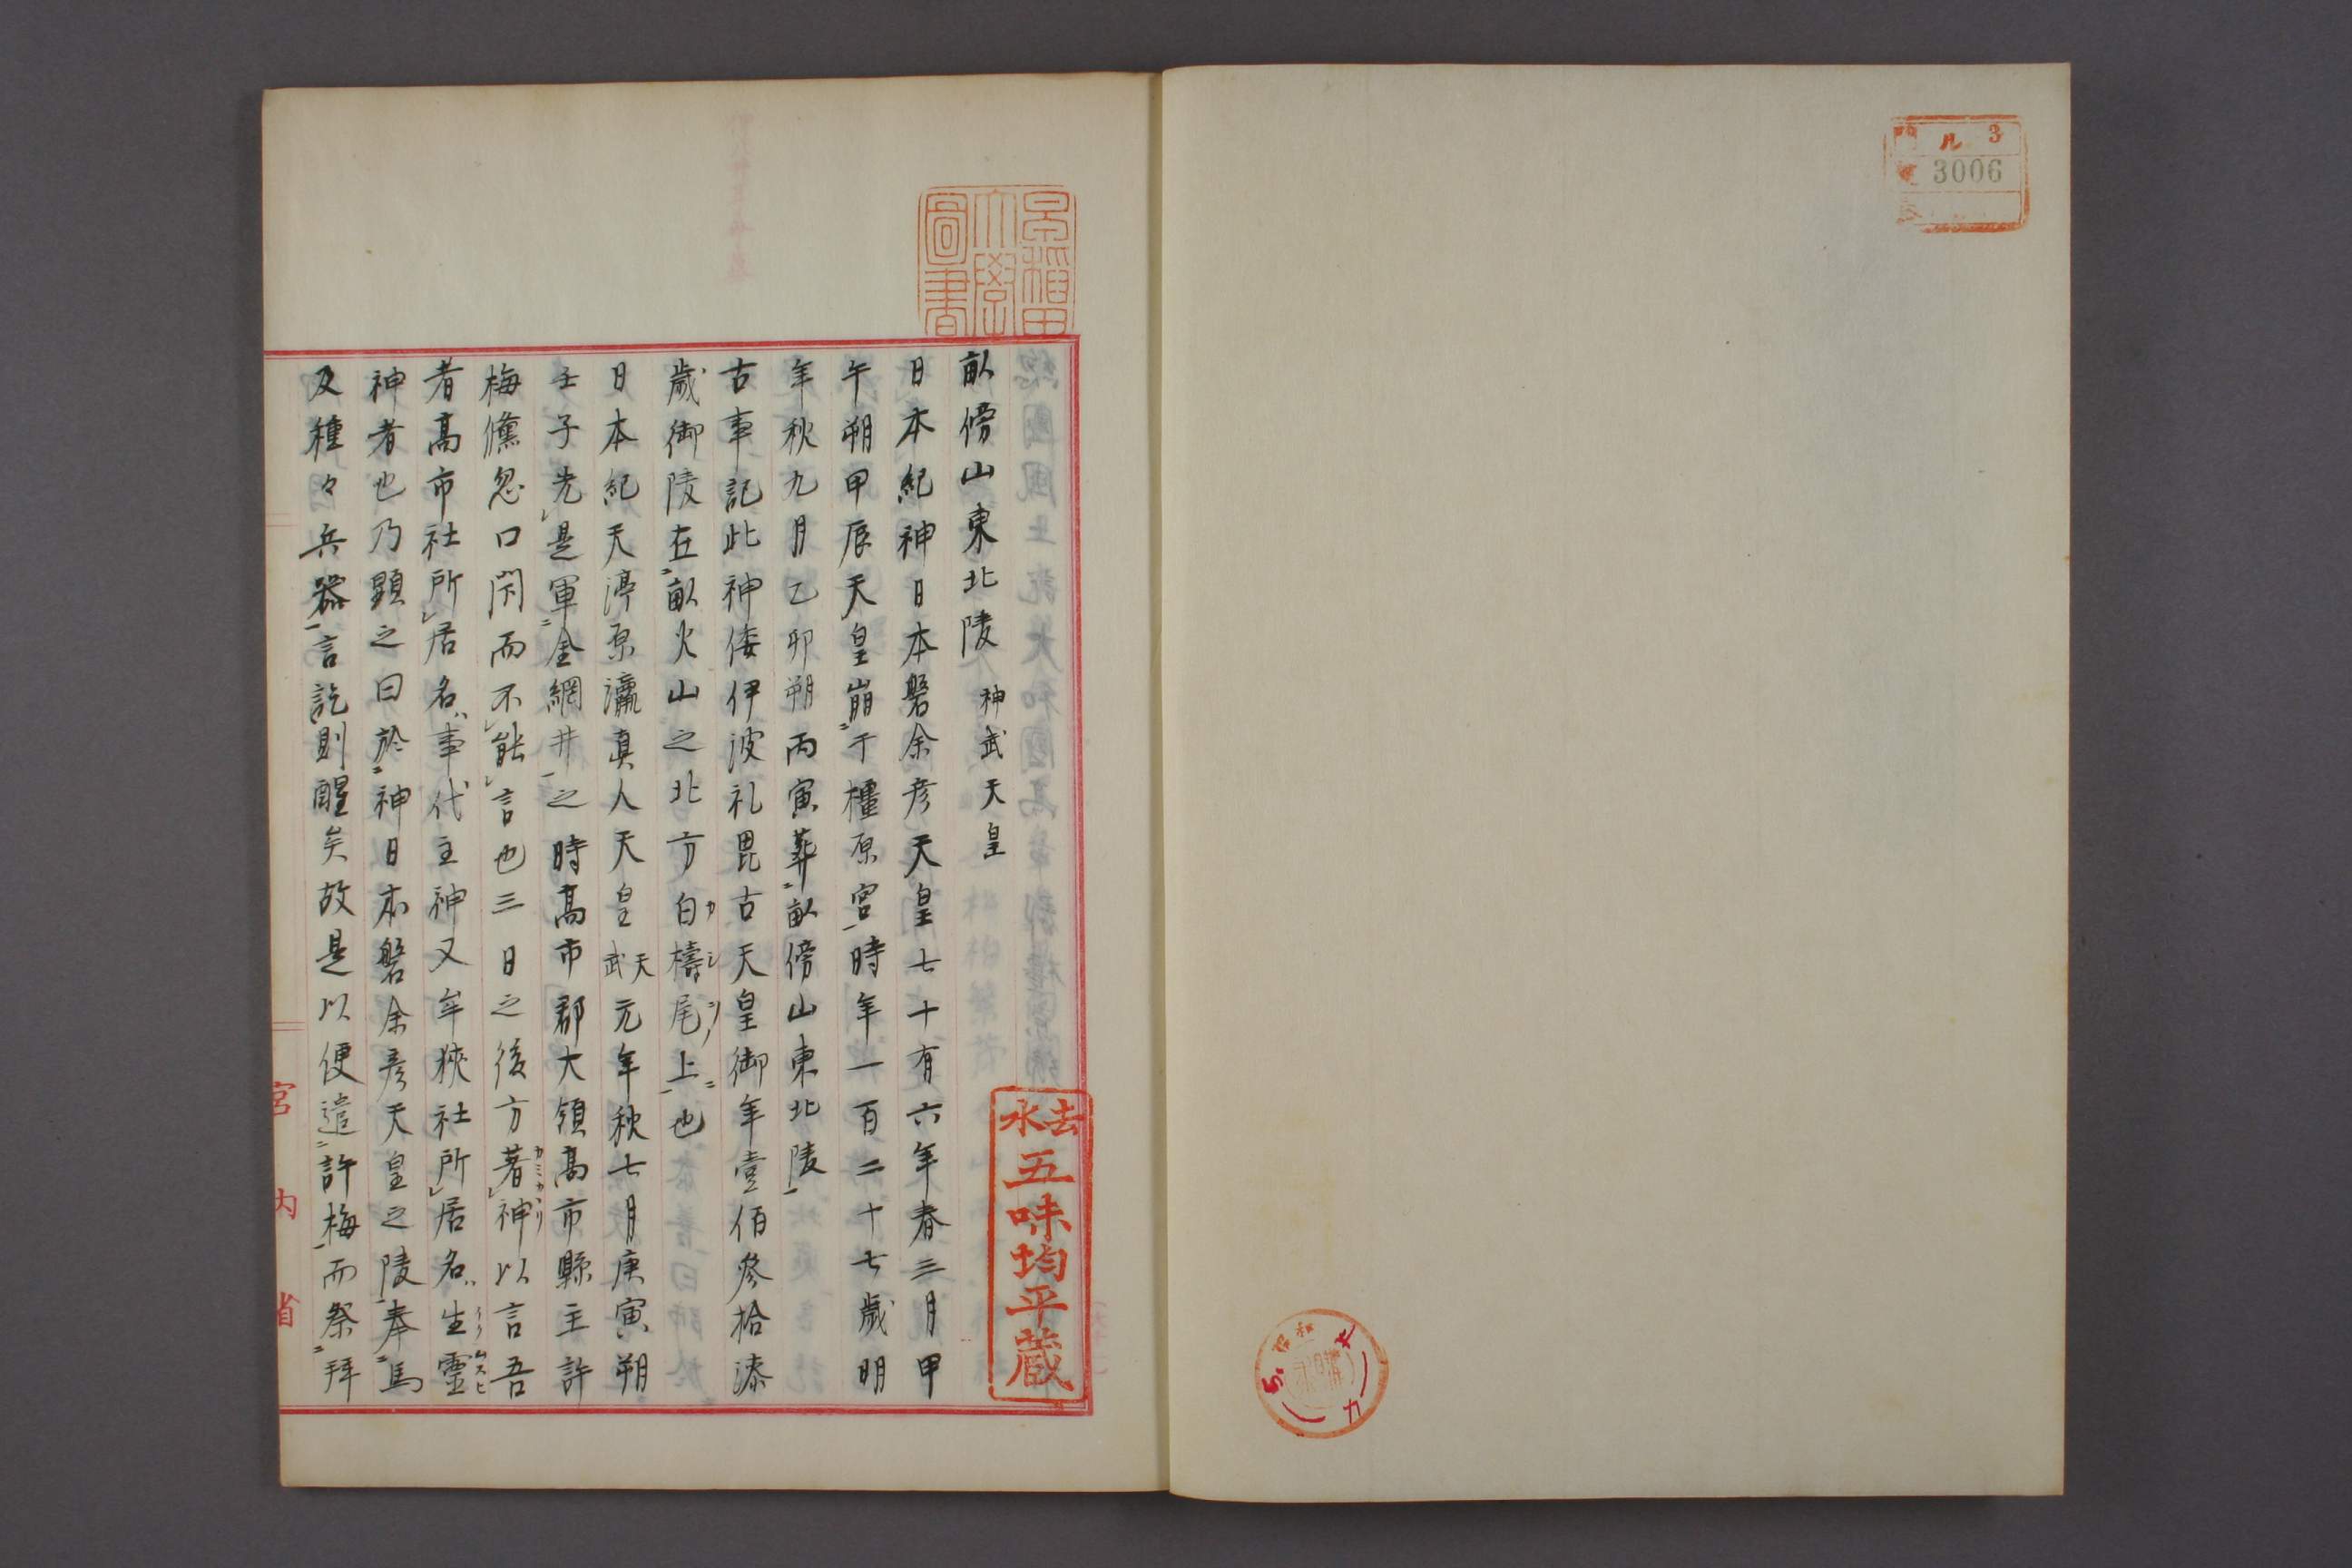 ル 3
3006
早稲田
大學
圖書
畝傍山東北陵 神武天皇
日本紀神日本磐余彦天皇七十有六年春三月甲
午朔甲辰天皇崩二于橿原宮一時年一百二十七歲明
年秋九月乙卯朔丙寅葬二畝傍山東北陵一
古事記此神倭伊波礼毘古天皇御年壹佰參拾漆
歲御陵在二畝火山之北方白檮尾上一也
カシノ
日本紀天渟原瀛真人天皇天武元年秋七月庚寅朔
壬子先レ是軍二金綱井一之時高市郡大領高市縣主許
梅儵忽口閇而不レ能レ言也三日之後方著レ神以言吾
カミカヽリ
者高市社所レ居名事代主神又牟狹社所レ居名生靈
ムスヒ
神者也乃顕之曰於二神日本磐余彦天皇之陵一奉二馬
及種々兵器一言訖則醒矣故是以便遣二許梅一而祭二拜
宮内省
去水
五味均平蔵
昭和
購